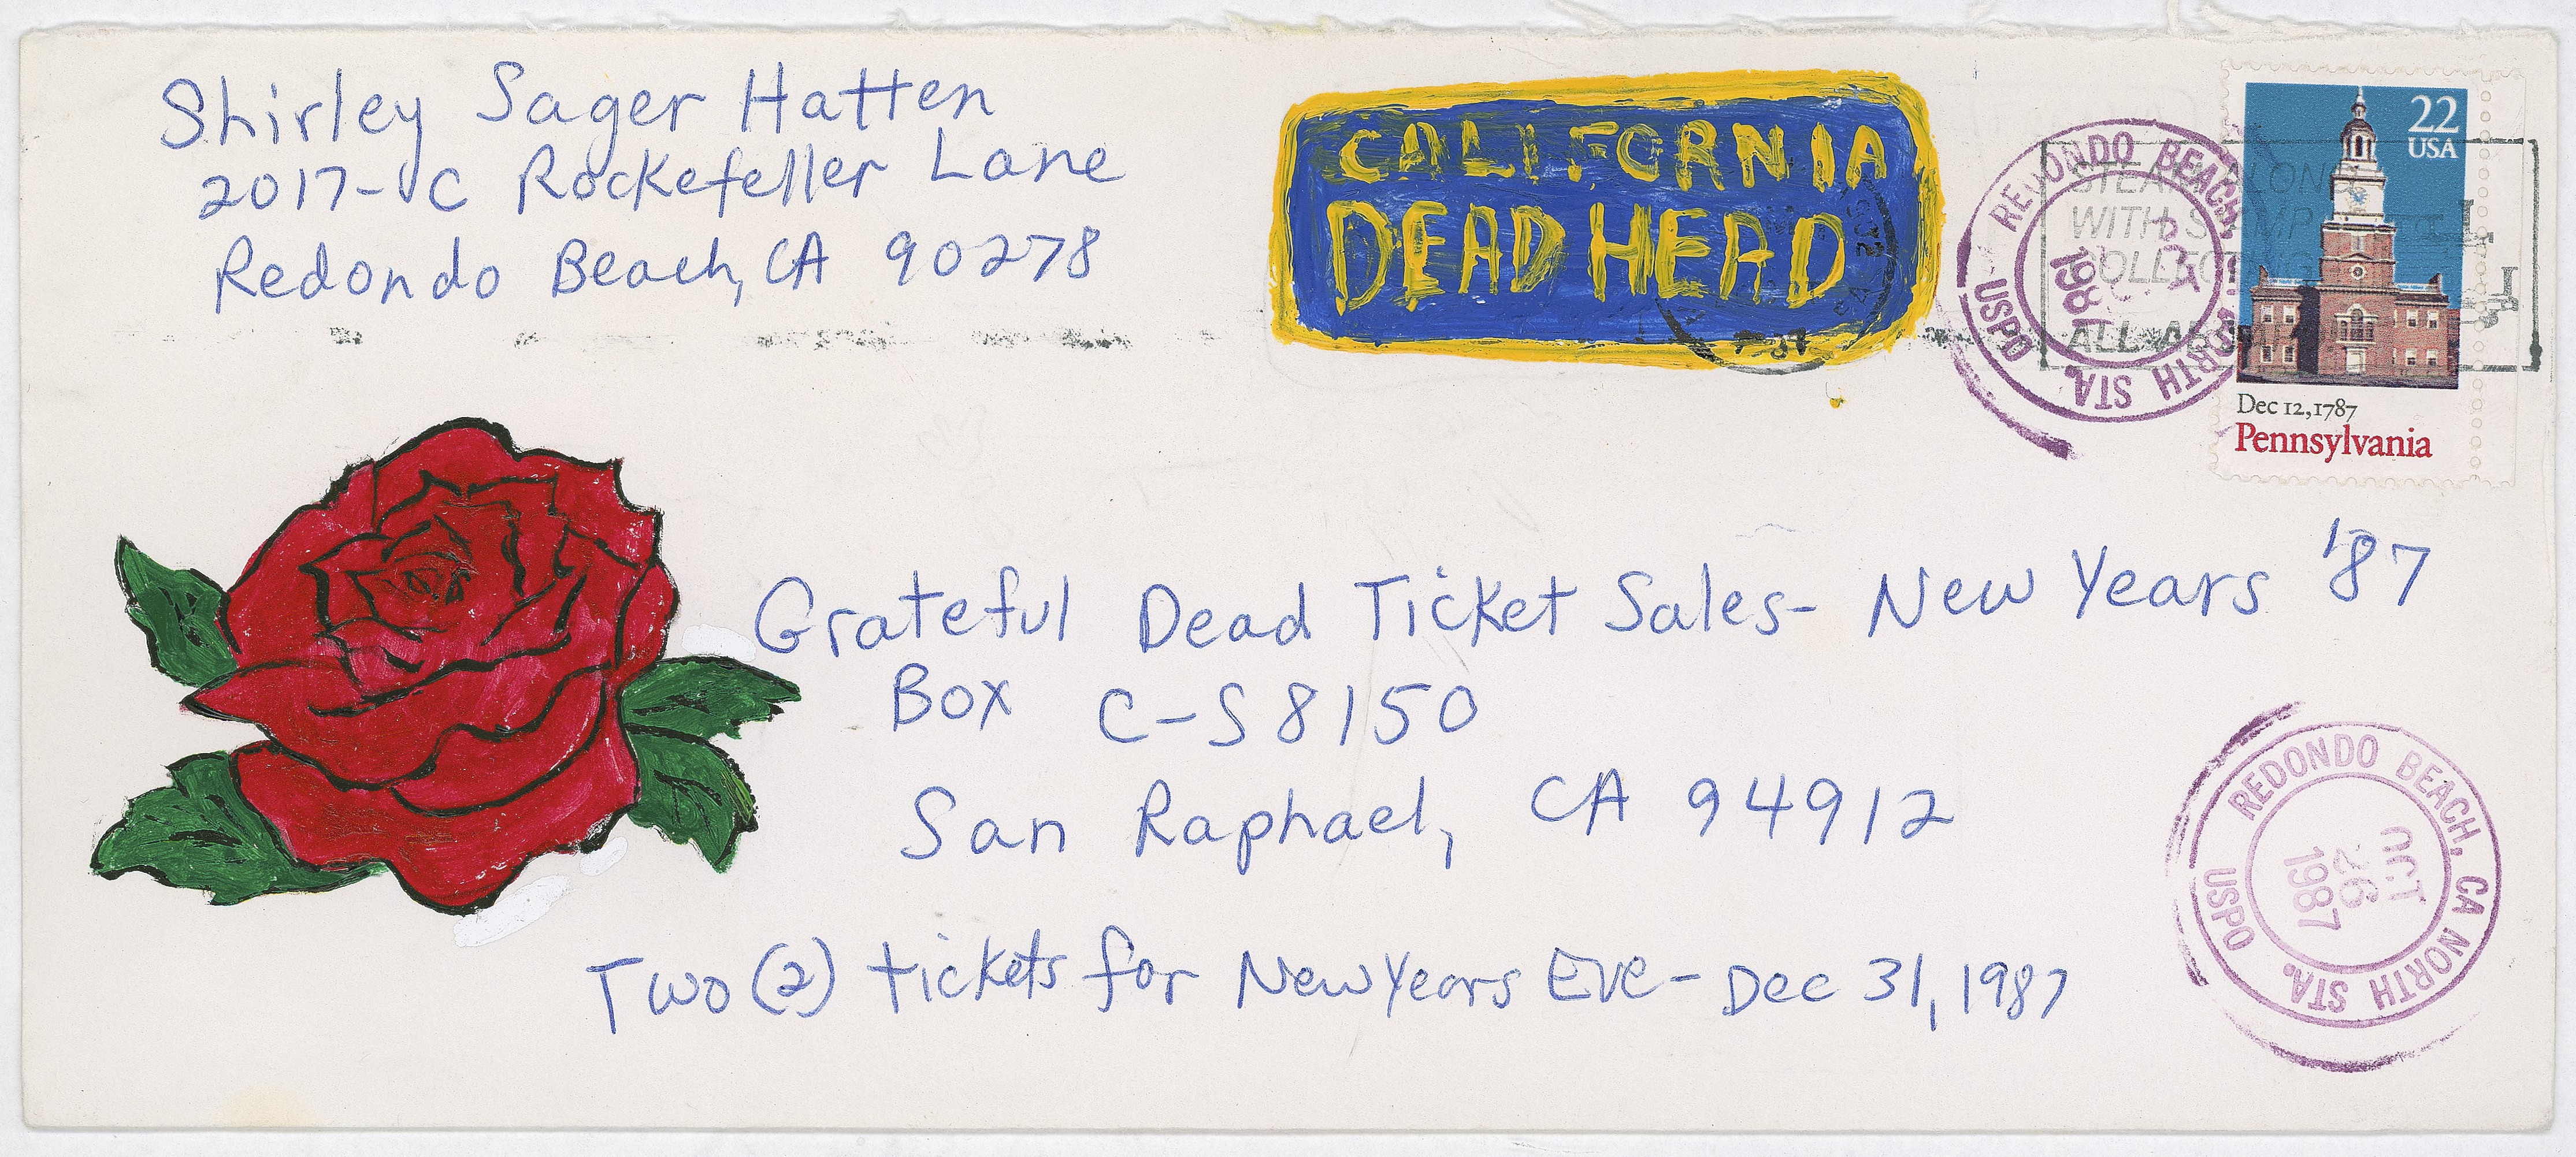 Shirley Sager Hatten
2017-C Rockefeller Lane
Redondo Beach, CA 90278
CALIFORNIA
DEAD HEAD
22
USA
Dec 12, 1787
Pennsylvania
REDONDO BEACH, NORTH STA. USPO
1987
STEAM ALONG
WITH STAMP
COLLECTING
'87
Grateful Dead Ticket Sales- New Years '87
Box C-S8150
San Raphael, CA 94912
Two (2) tickets for New Years Eve- Dec 31, 1987
REDONDO BEACH, CA NORTH STA. USPO
OCT
26
1987